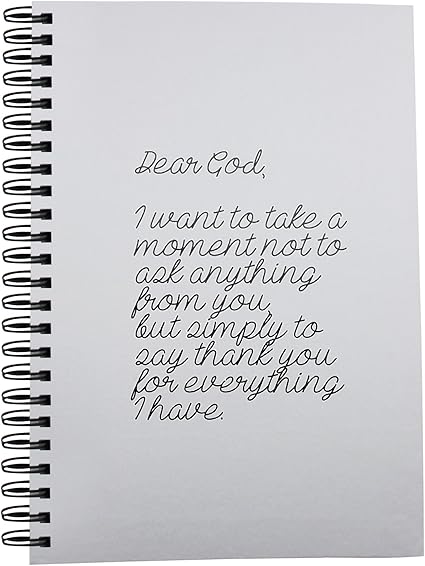 Dear God,
I want to take a
moment not to
ask anything
from you,
but simply to
say thank you
for everything
I have.